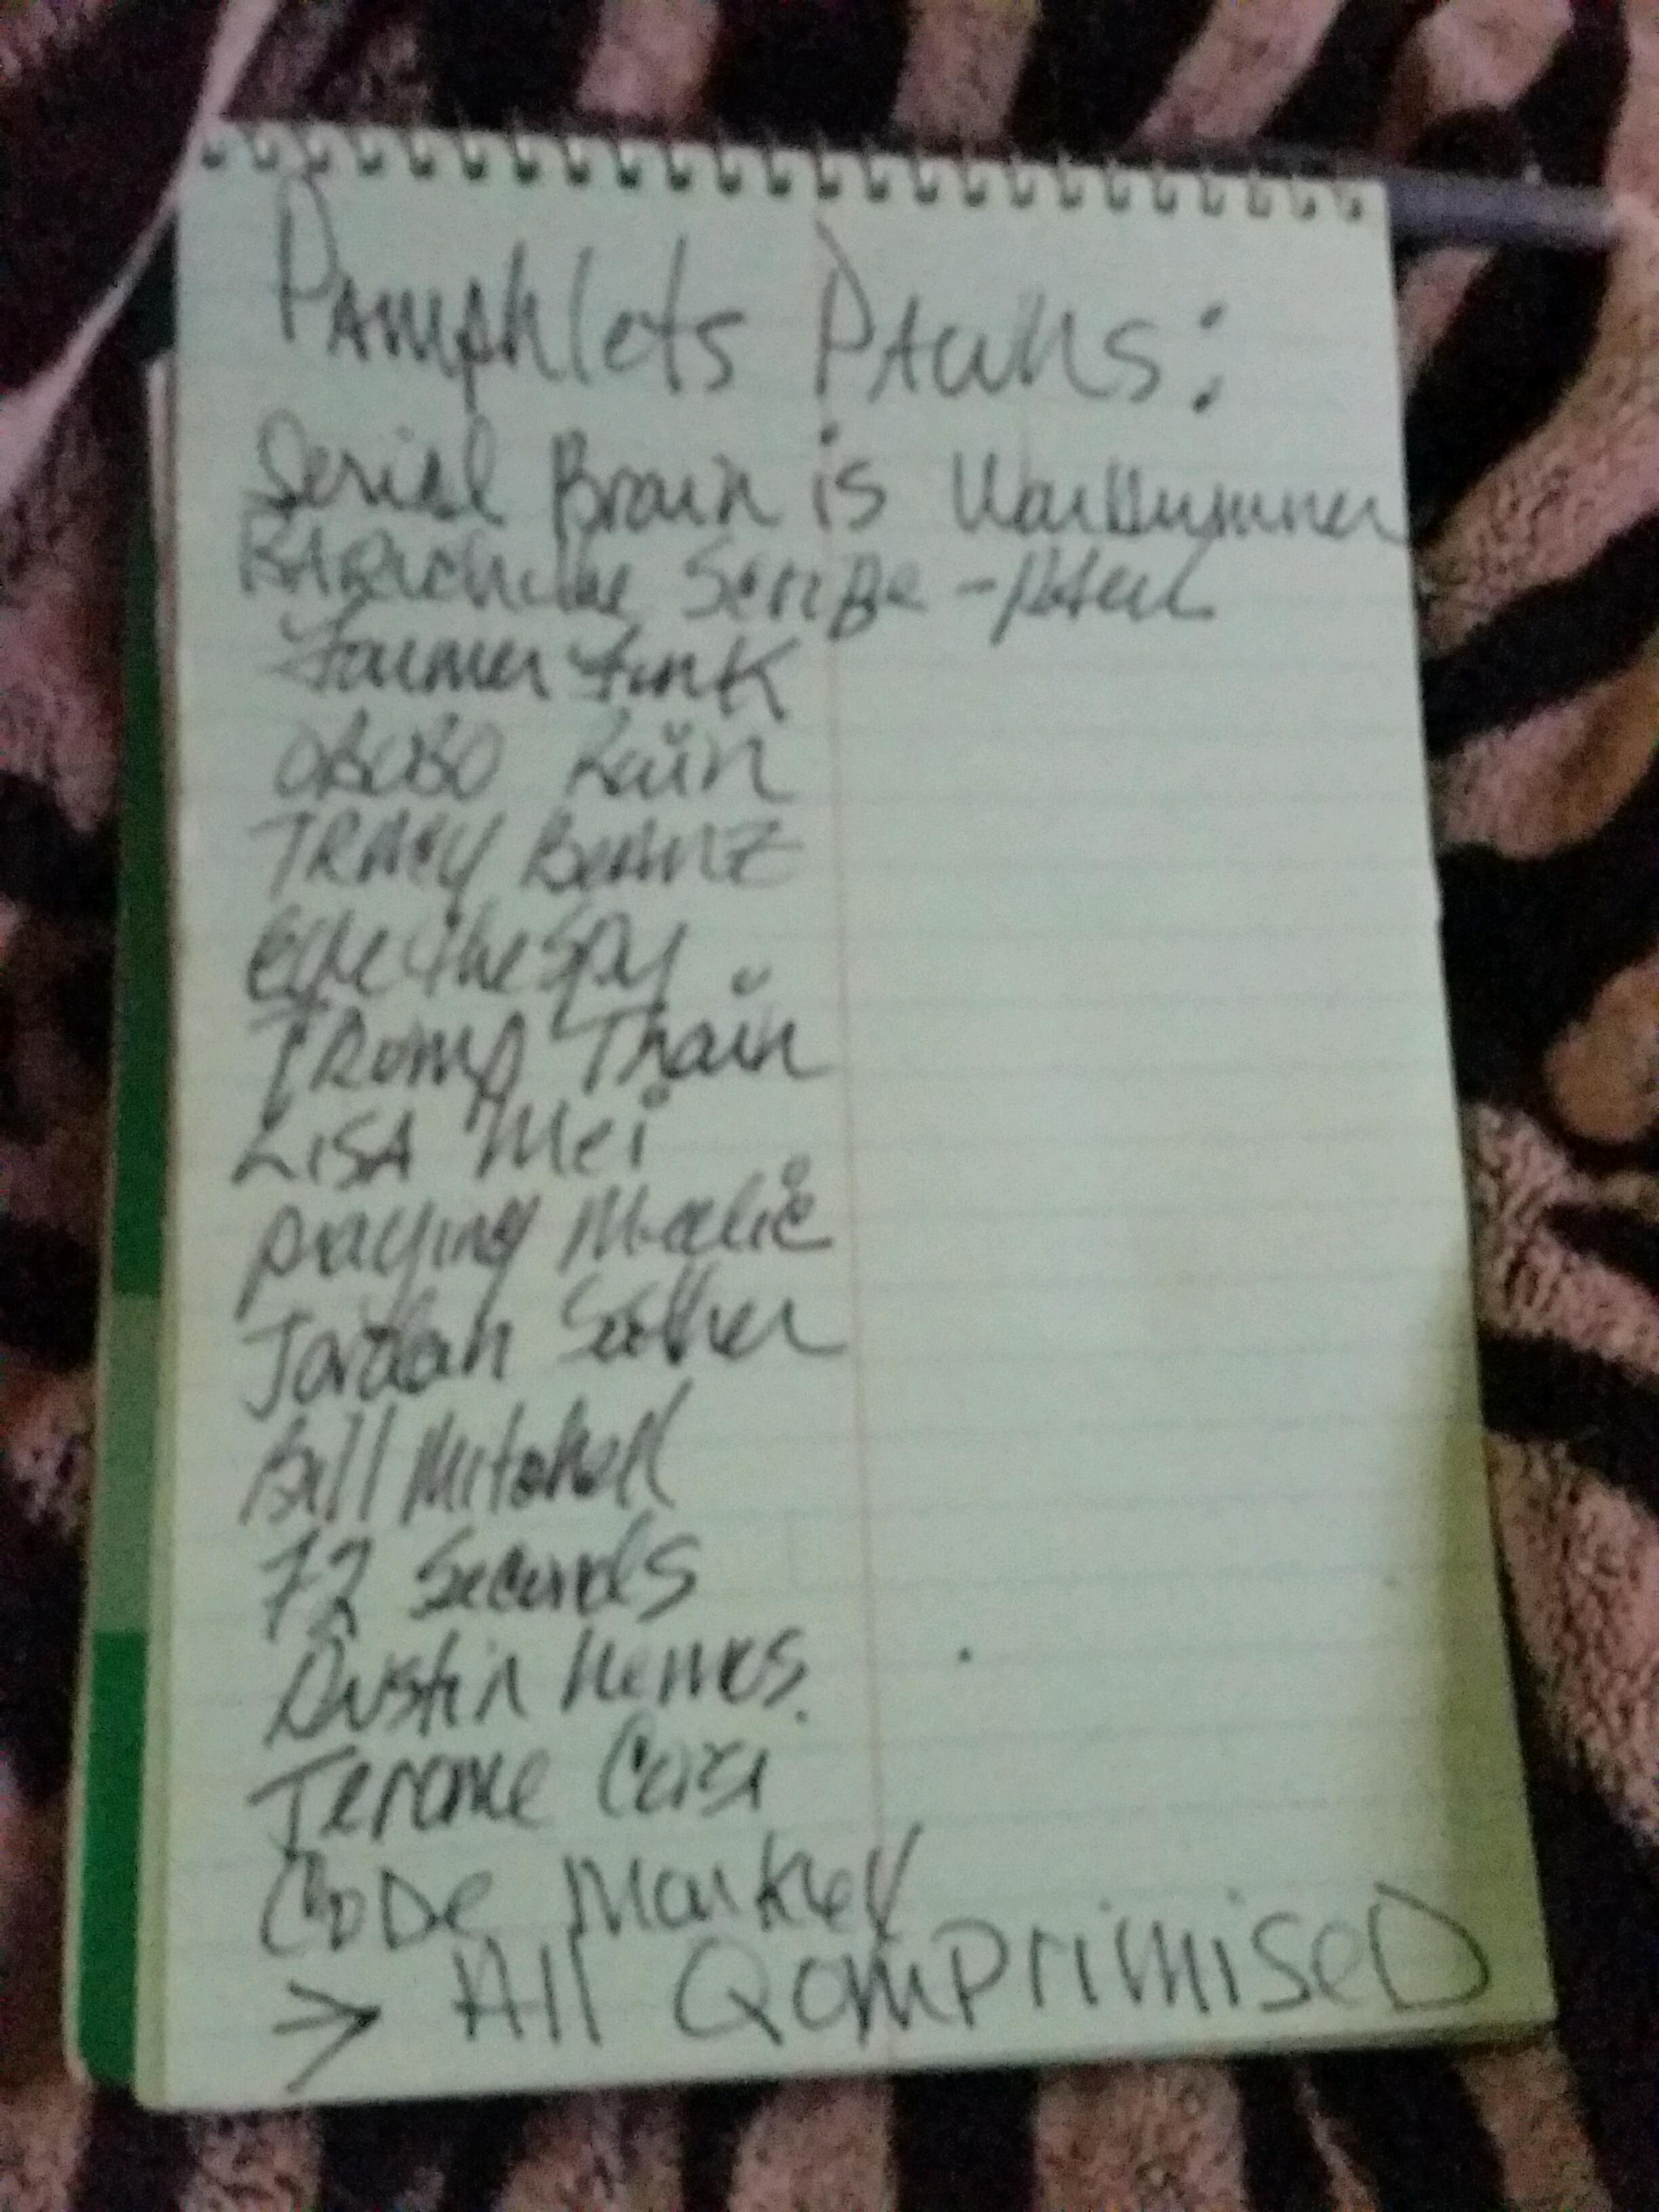 Pamphlets Pawns:
Serial Brain is WarDrummer
Baruch the Scribe -
Farmer Funk
OBOBO Rain
TRACY Beanz
eyethespy
TRump Train
LISA Mei
praying Medic
Jordan Sather
Bill Mitchell
72 Seconds
Dustin Nemos.
Jerome Corsi
CoDe Monkey
> All QompromiseD